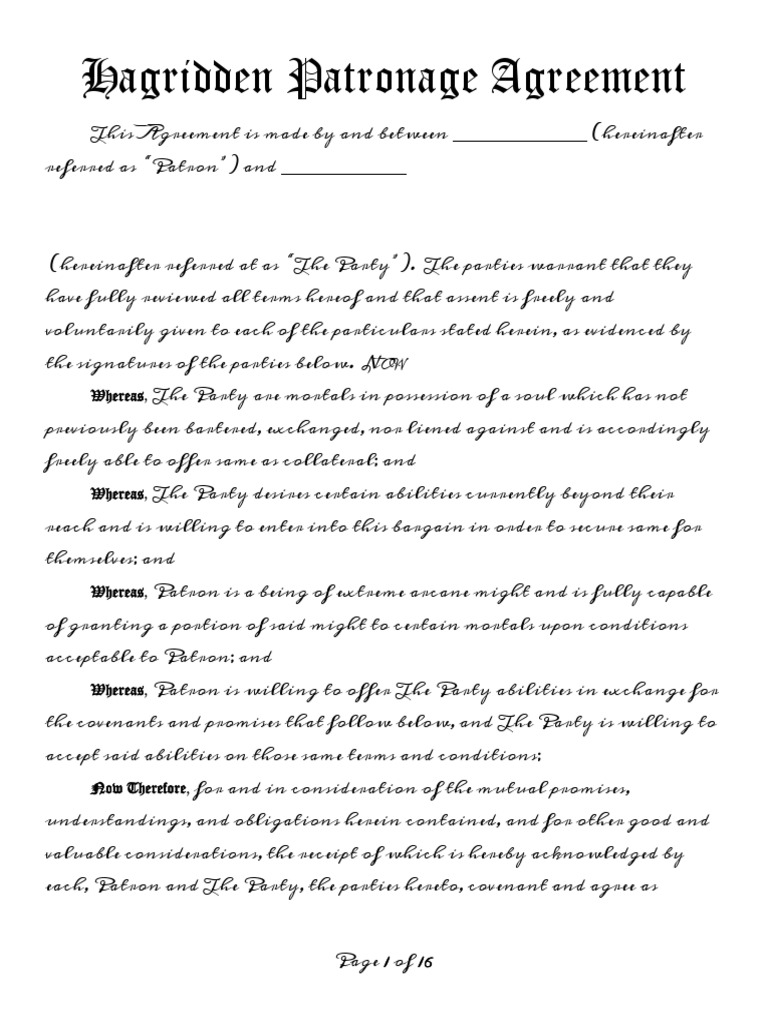 Hagridden Patronage Agreement
This Agreement is made by and between ____________ (hereinafter
referred as "Patron") and ___________
(hereinafter referred at as "The Party"). The parties warrant that they
have fully reviewed all terms hereof and that assent is freely and
voluntarily given to each of the particulars stated herein, as evidenced by
the signatures of the parties below. NOW
Whereas, The Party are mortals in possession of a soul which has not
previously been bartered, exchanged, nor liened against and is accordingly
freely able to offer same as collateral; and
Whereas, The Party desires certain abilities currently beyond their
reach and is willing to enter into this bargain in order to secure same for
themselves; and
Whereas, Patron is a being of extreme arcane might and is fully capable
of granting a portion of said might to certain mortals upon conditions
acceptable to Patron; and
Whereas, Patron is willing to offer The Party abilities in exchange for
the covenants and promises that follow below, and The Party is willing to
accept said abilities on those same terms and conditions;
Now Therefore, for and in consideration of the mutual promises,
understandings, and obligations herein contained, and for other good and
valuable considerations, the receipt of which is hereby acknowledged by
each, Patron and The Party, the parties hereto, covenant and agree as
Page 1 of 16